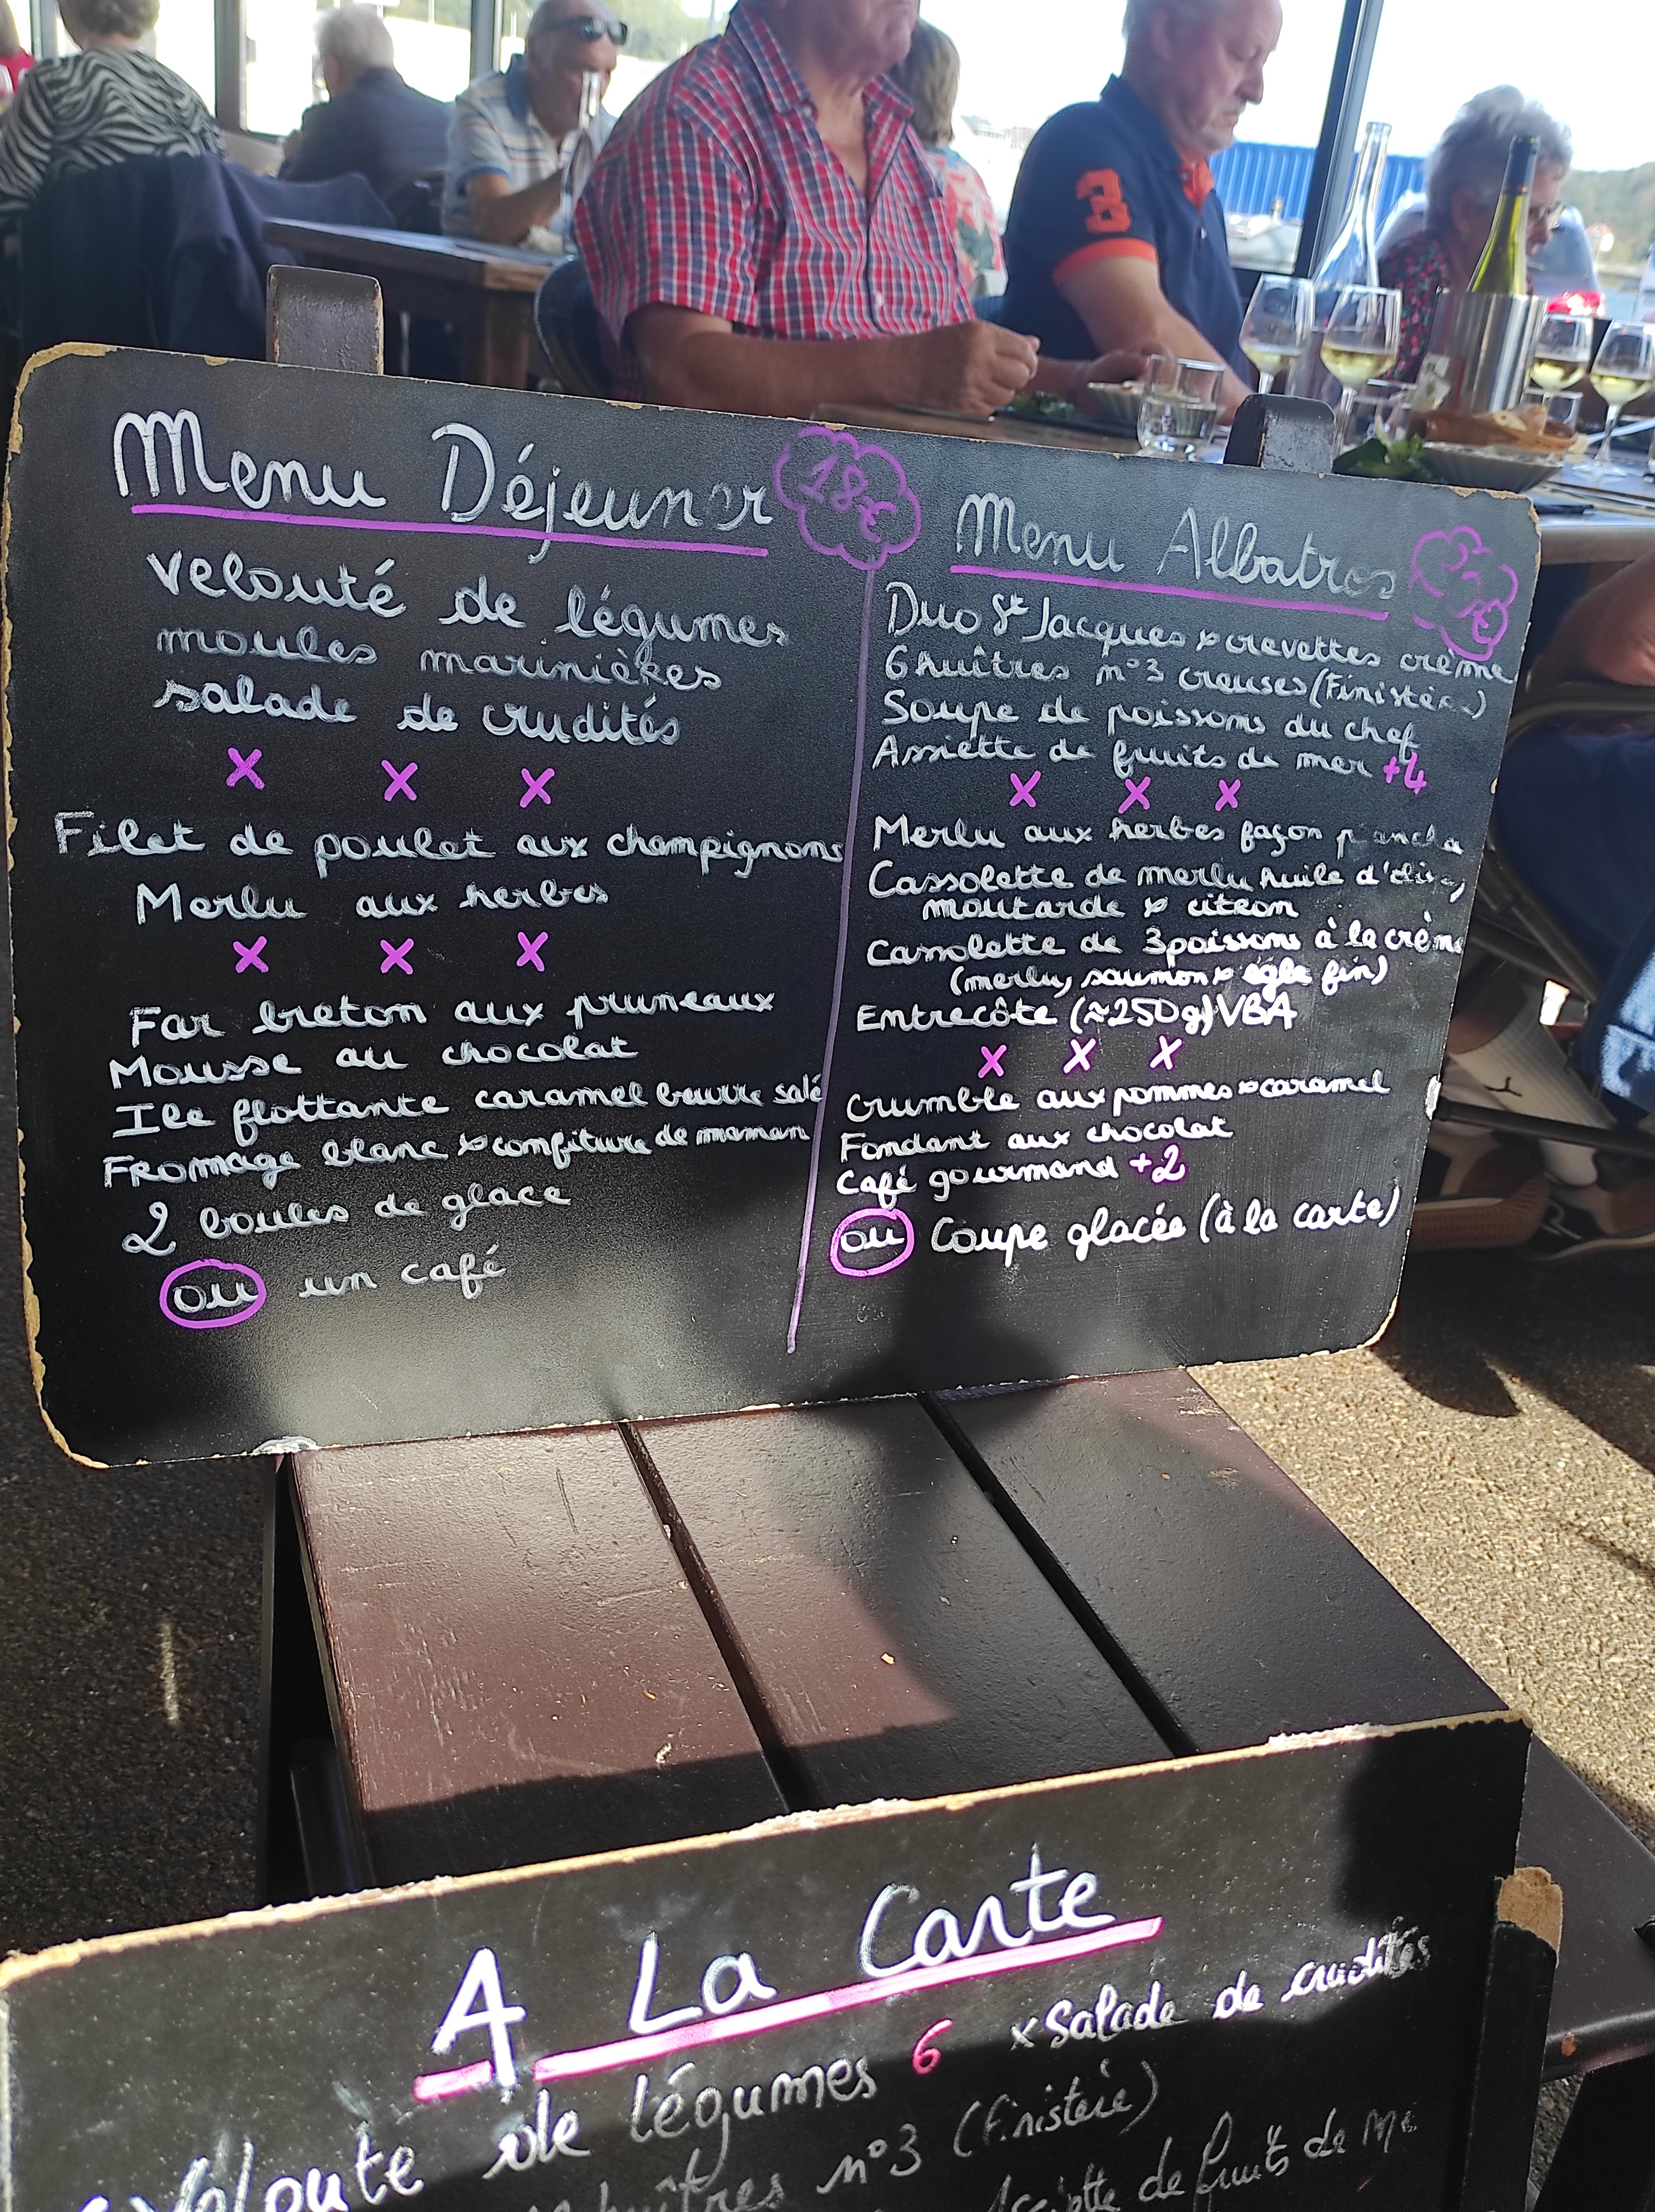 Menu Déjeuner 18€
velouté de légumes
moules marinières
salade de crudités
x x x
Filet de poulet aux champignons
Merlu aux herbes
x x x
Far breton aux pruneaux
Mousse au chocolat
Ile flottante caramel beurre salé
Fromage blanc & confiture de maman
2 boules de glace
ou un café
Menu Albatros €
Duo St Jacques & crevettes crème
6 huîtres n°3 creuses (Finistère)
Soupe de poissons du chef
Assiette de fruits de mer +4
x x x
Merlu aux herbes façon plancha
Cassolette de merlu huile d'olive,
moutarde & citron
Cassolette de 3 poissons à la crème
(merlu, saumon & égle fin)
Entrecôte (≈250g) VBA
x x x
Crumble aux pommes & caramel
Fondant aux chocolat
Café gourmand +2
ou Coupe glacée (à la carte)
3
A La Carte
Velouté de légumes 6 x Salade de crudités
huîtres n°3 (Finistère)
Assiette de fruits de Me